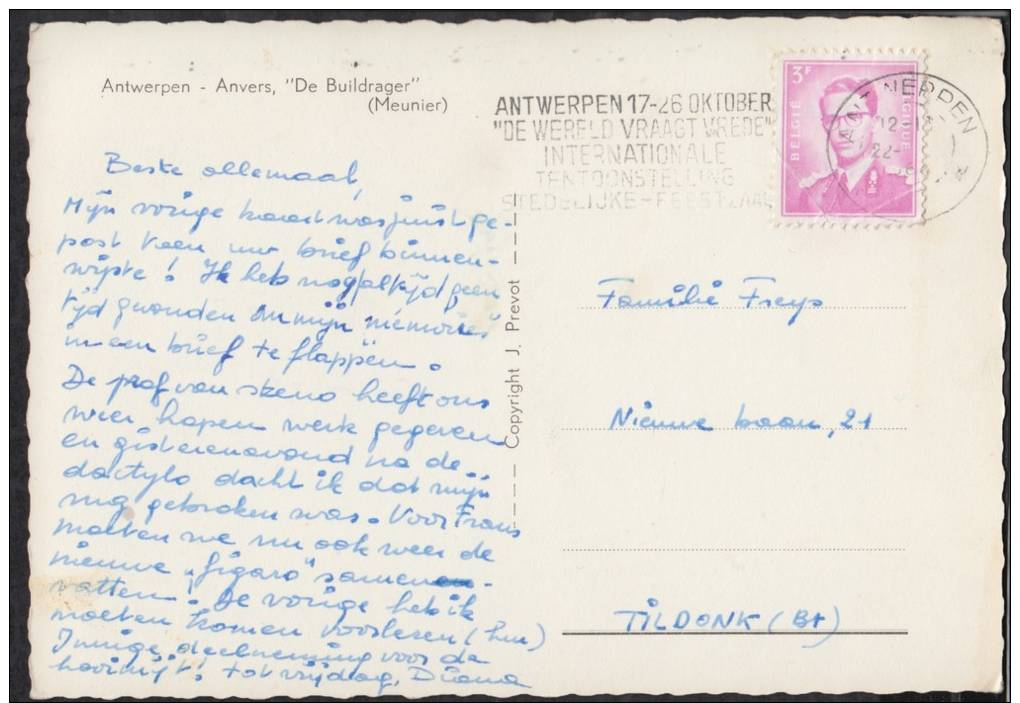 Antwerpen - Anvers, "De Buildrager"
(Meunier)
ANTWERPEN 17-26 OKTOBER
"DE WERELD VRAAGT VREDE"
INTERNATIONALE
TENTOONSTELLING
STEDELIJKE-FEESTZAAL
3F
BELGIË
BELGIQUE
ANTWERPEN
Beste allemaal,
Mijn vorige kaart was juist ge-
post toen uw brief binnen-
wipte! Ik heb nog altijd geen
tijd gevonden om mijn memoires
in een brief te flappen.
De prof van steno heeft ons
weer hopen werk gegeven
en gisterenavond na de
dactylo dacht ik dat mijn
rug gebroken was. Voor Frans
moeten we nu ook weer de
nieuwe "figaro" samen-
vatten. De vorige heb ik
moeten komen voorlezen (hm)
Innige deelneming voor de
hooimijt! tot vrijdag, Diana
Copyright J. Prevot
Familie Freys
Nieuwe baan, 21
TILDONK (Bt)